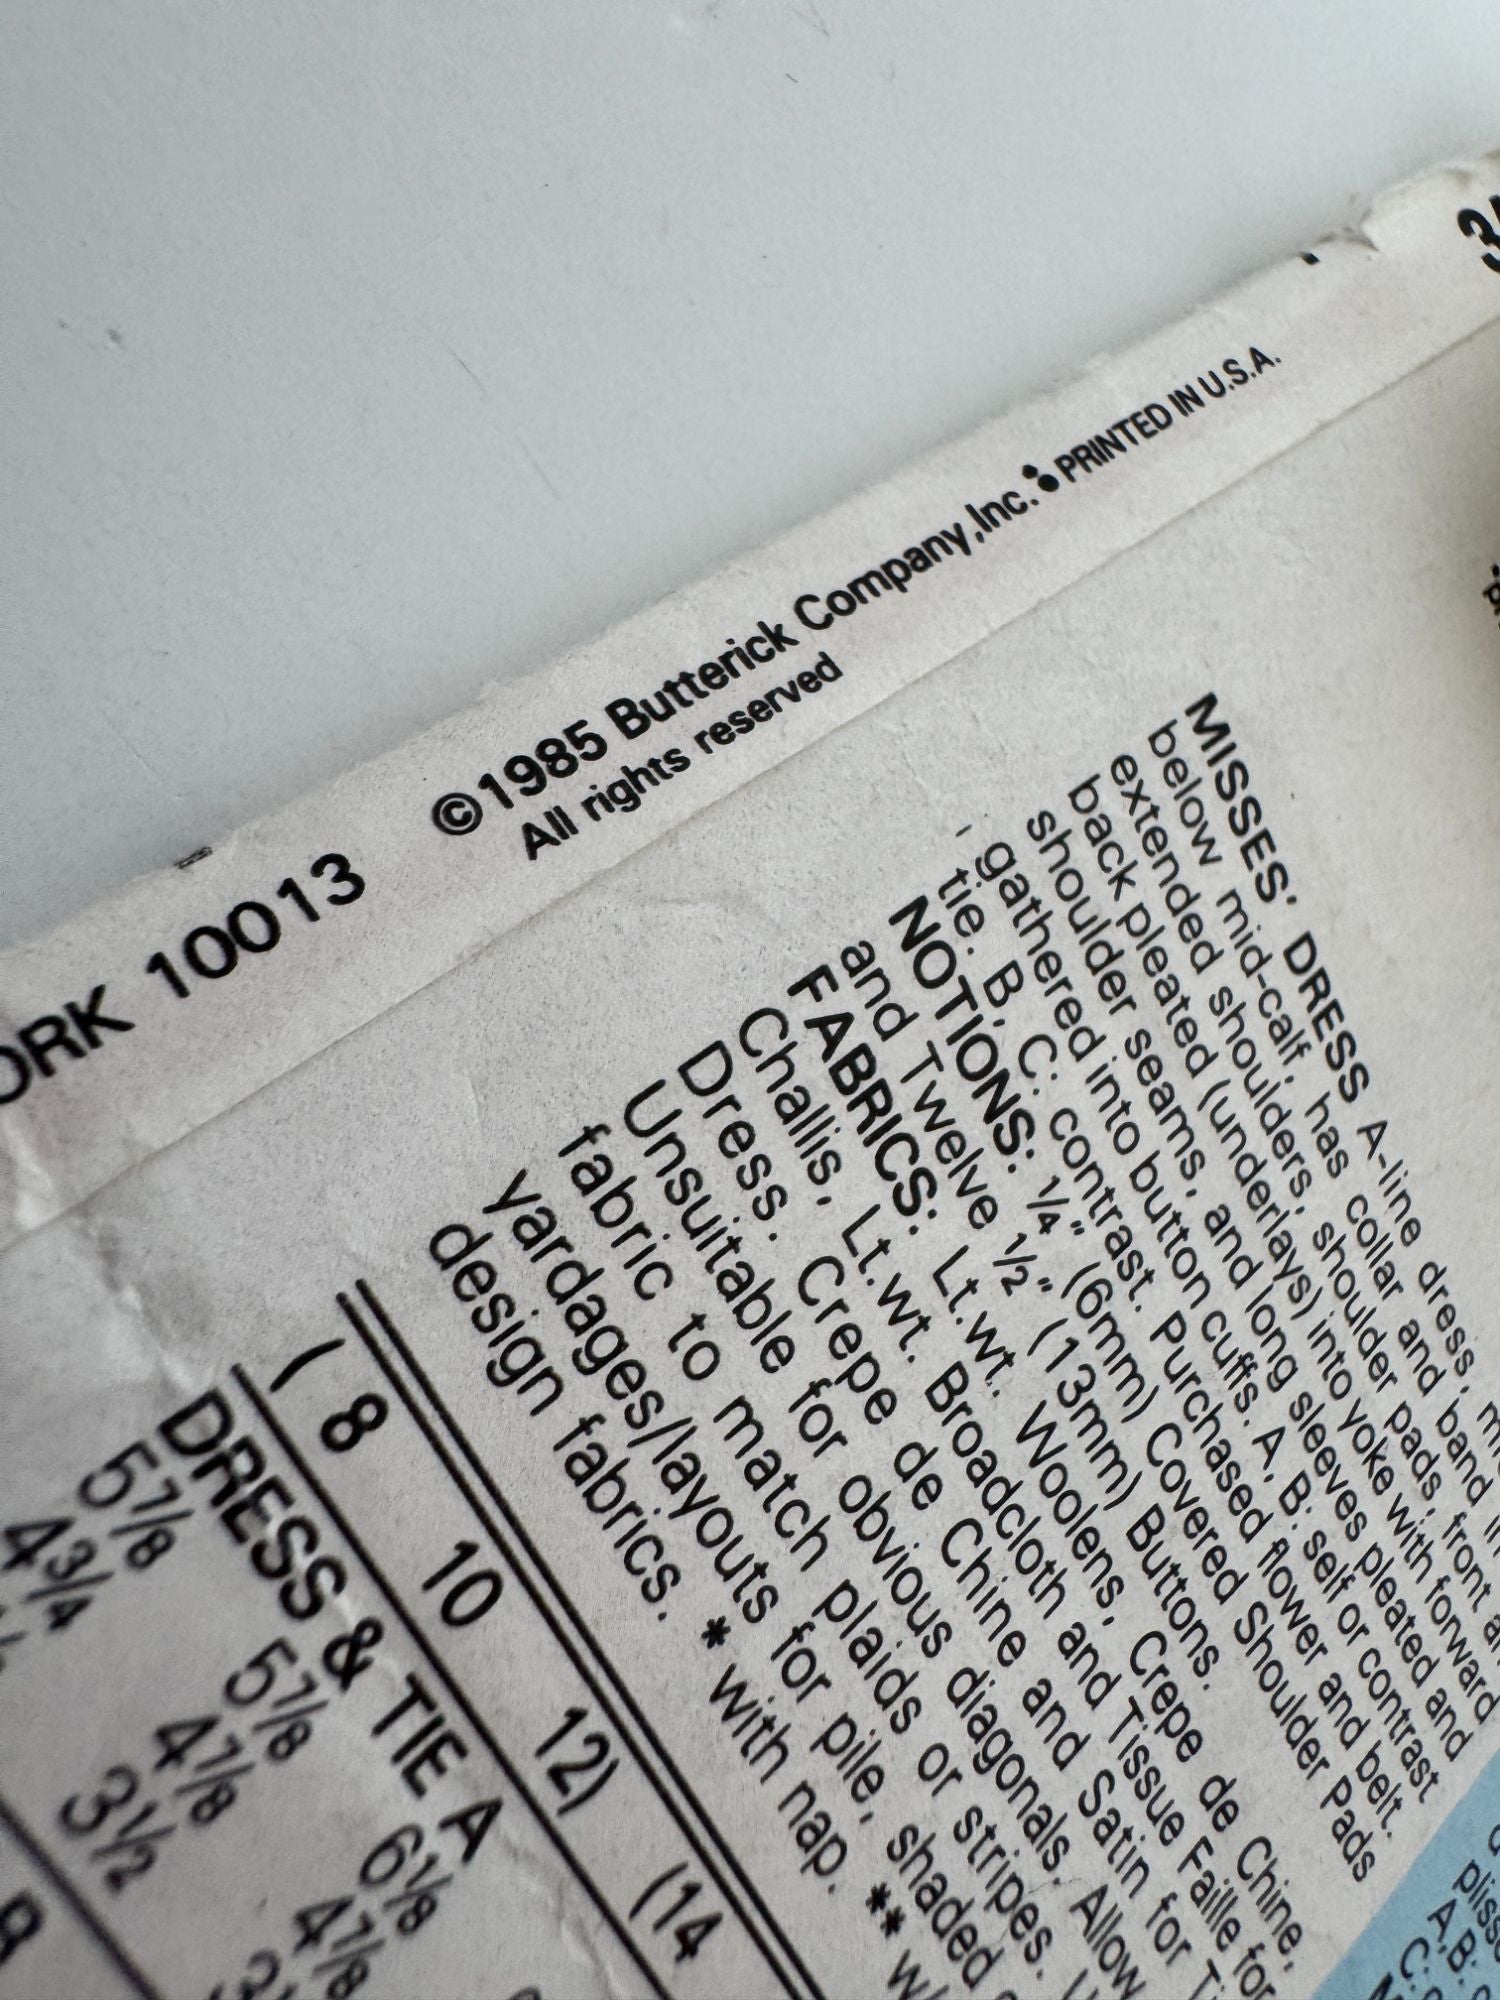 10013
©1985 Butterick Company,Inc. • PRINTED IN U.S.A.
All rights reserved
MISSES' DRESS A-line dress,
below mid-calf, has collar and band
extended shoulders, shoulder pads, front
back pleated (underlays) into yoke with forward
shoulder seams, and long sleeves pleated and
gathered into button cuffs. A, B: self or contrast
tie. B, C: contrast. Purchased flower and belt.
NOTIONS: ¼" (6mm) Covered Shoulder Pads
and Twelve ½" (13mm) Buttons.
FABRICS: Lt.wt. Woolens, Crepe de Chine,
Challis, Lt.wt. Broadcloth and Tissue Faille for
Dress. Crepe de Chine and Satin for
Unsuitable for obvious diagonals. Allow
fabric to match plaids or stripes.
yardages/layouts for pile, shaded
design fabrics. * with nap. **
( 8 10 12) (14
DRESS & TIE A
5⅞ 5⅞ 6⅛
4¾ 4⅞ 4⅞
3½